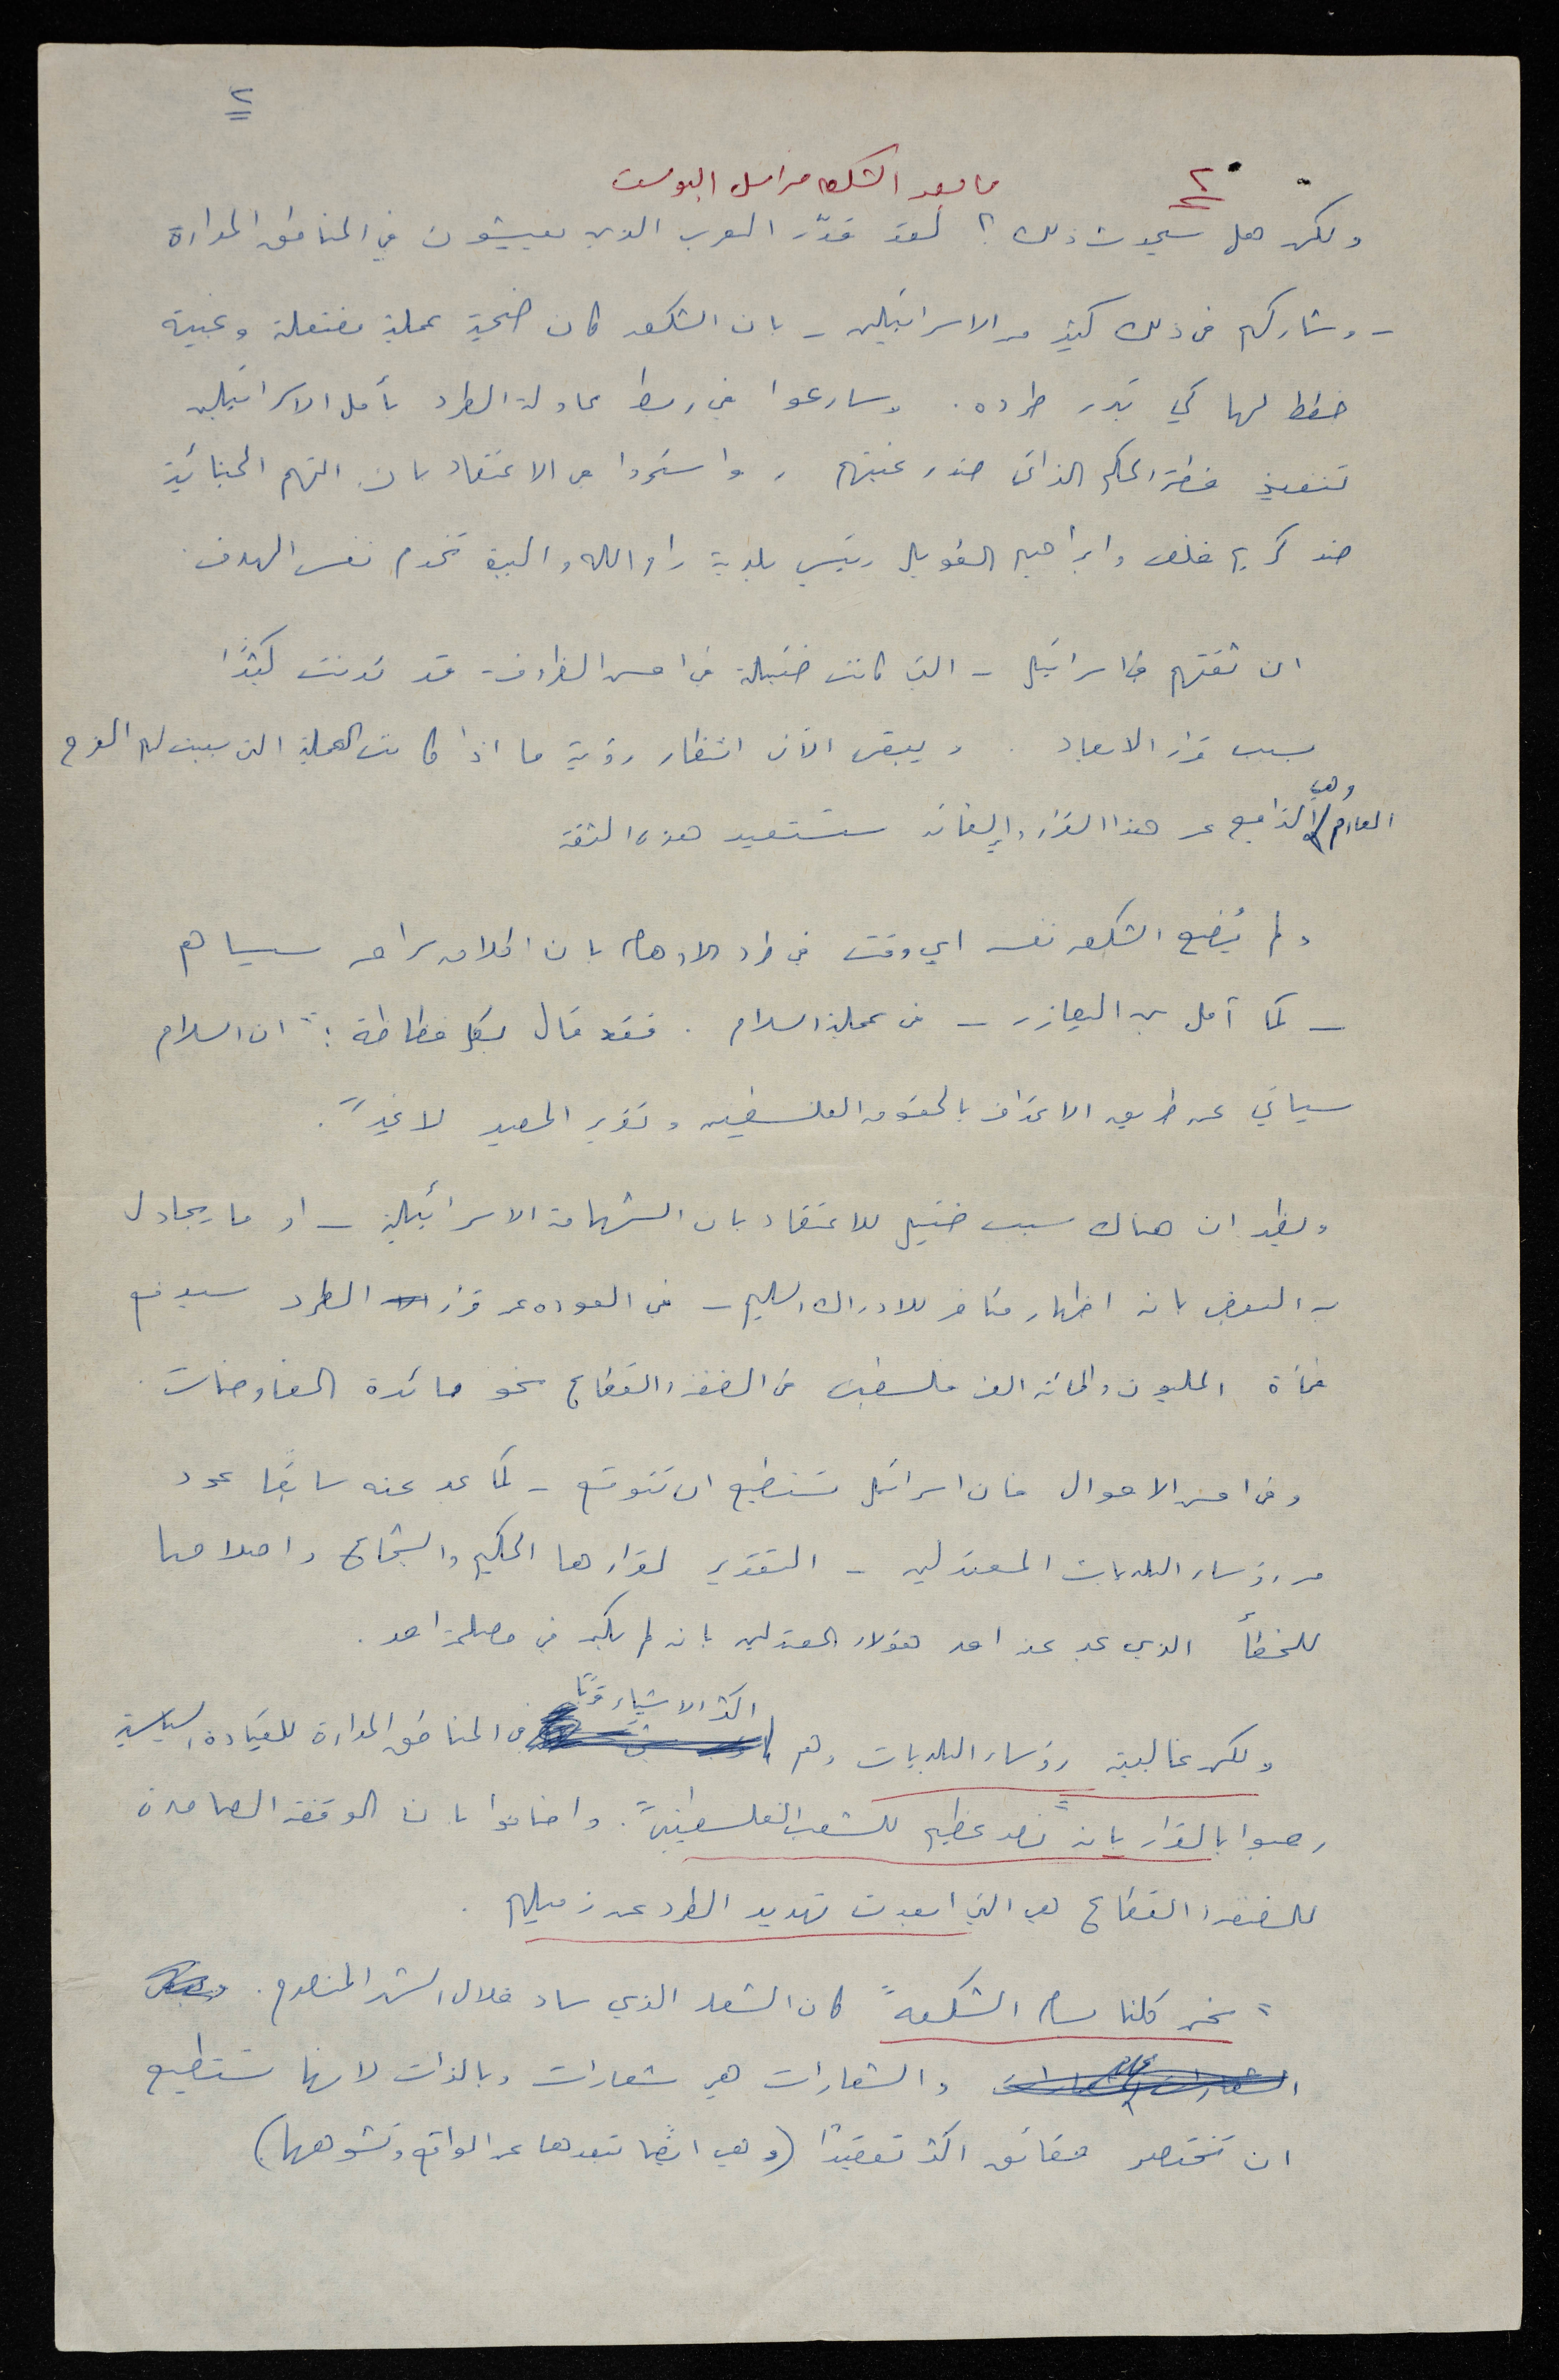 ٢
٢
ما بعد الشكعه مراسل البوست
ولكن هل سيحدث ذلك ؟ لقد قدّر العرب الذين يعيشون في المناطق المدارة
- وشاركهم في ذلك كثير من الاسرائيليين - بان الشكعه كان ضحية عملية مفتعلة وغبية
خطط لها كي تبرر طرده . وسارعوا في ربط محاولة الطرد بأمل الاسرائيليين
تنفيذ خطة الحكم الذاتي ضد رغبتهم , واستمروا في الاعتقاد بان التهم الجنائية
ضد كريم خلف وابراهيم الطويل رئيس بلدية رام الله والبيرة تخدم نفس الهدف .
ان ثقتهم في اسرائيل - التي كانت ضئيلة في احسن الظروف - قد تدنت كثيرًا
بسبب قرار الابعاد . ويبقى الآن انتظار رؤية ما اذا كانت العملية التي سببت لهم الفرح
العارم / وهي التراجع عن هذا القرار والغائه ستستعيد هذه الثقة
ولم يُضع الشكعه نفسه اي وقت في طرد الاوهام بان اطلاق سراحه سيساهم
- كما آمل بن اليعازر - في عملية السلام . فقد قال بكل فظاظة : " ان السلام
سيأتي عن طريق الاعتراف بالحقوق الفلسطينيه وتقرير المصير لا غير " .
ويظهر ان هناك سبب ضئيل للاعتقاد بان الشهامة الاسرائيلية - او ما يجادل
به البعض بانه اظهار متأخر للادراك السليم - في العوده عن قرار الطرد سيدفع
فجأة المليون والمائة الف فلسطيني في الضفه والقطاع نحو مائدة المفاوضات .
وفي احسن الاحوال فان اسرائيل تستطيع ان تتوقع - كما عبر عنه سابقًا عدد
من رؤساء البلديات المعتدلين - التقدير لقرارها الحكيم والشجاع واصلاحها
للخطأ الذي عبر عنه احد هؤلاء المعتدلين بانه لم يكن في مصلحة احد .
ولكن غالبية رؤساء البلديات وهم اكثر الاشياء قربًا في المناطق المدارة للقيادة السياسية
رحبوا بالقرار بانه " نصر عظيم للشعب الفلسطيني " . واضافوا بان الوقفة الصامدة
للضفه والقطاع هي التي ابعدت تهديد الطرد عن زميلهم .
" نحن كلنا بسام الشكعه " كان الشعار الذي ساد خلال الشهر المنصرم .
والشعارات هي شعارات وبالذات لانها تستطيع
ان تختصر حقائق اكثر تعقيدًا ( وهي ايضًا تبعدها عن الواقع وتشوهها )